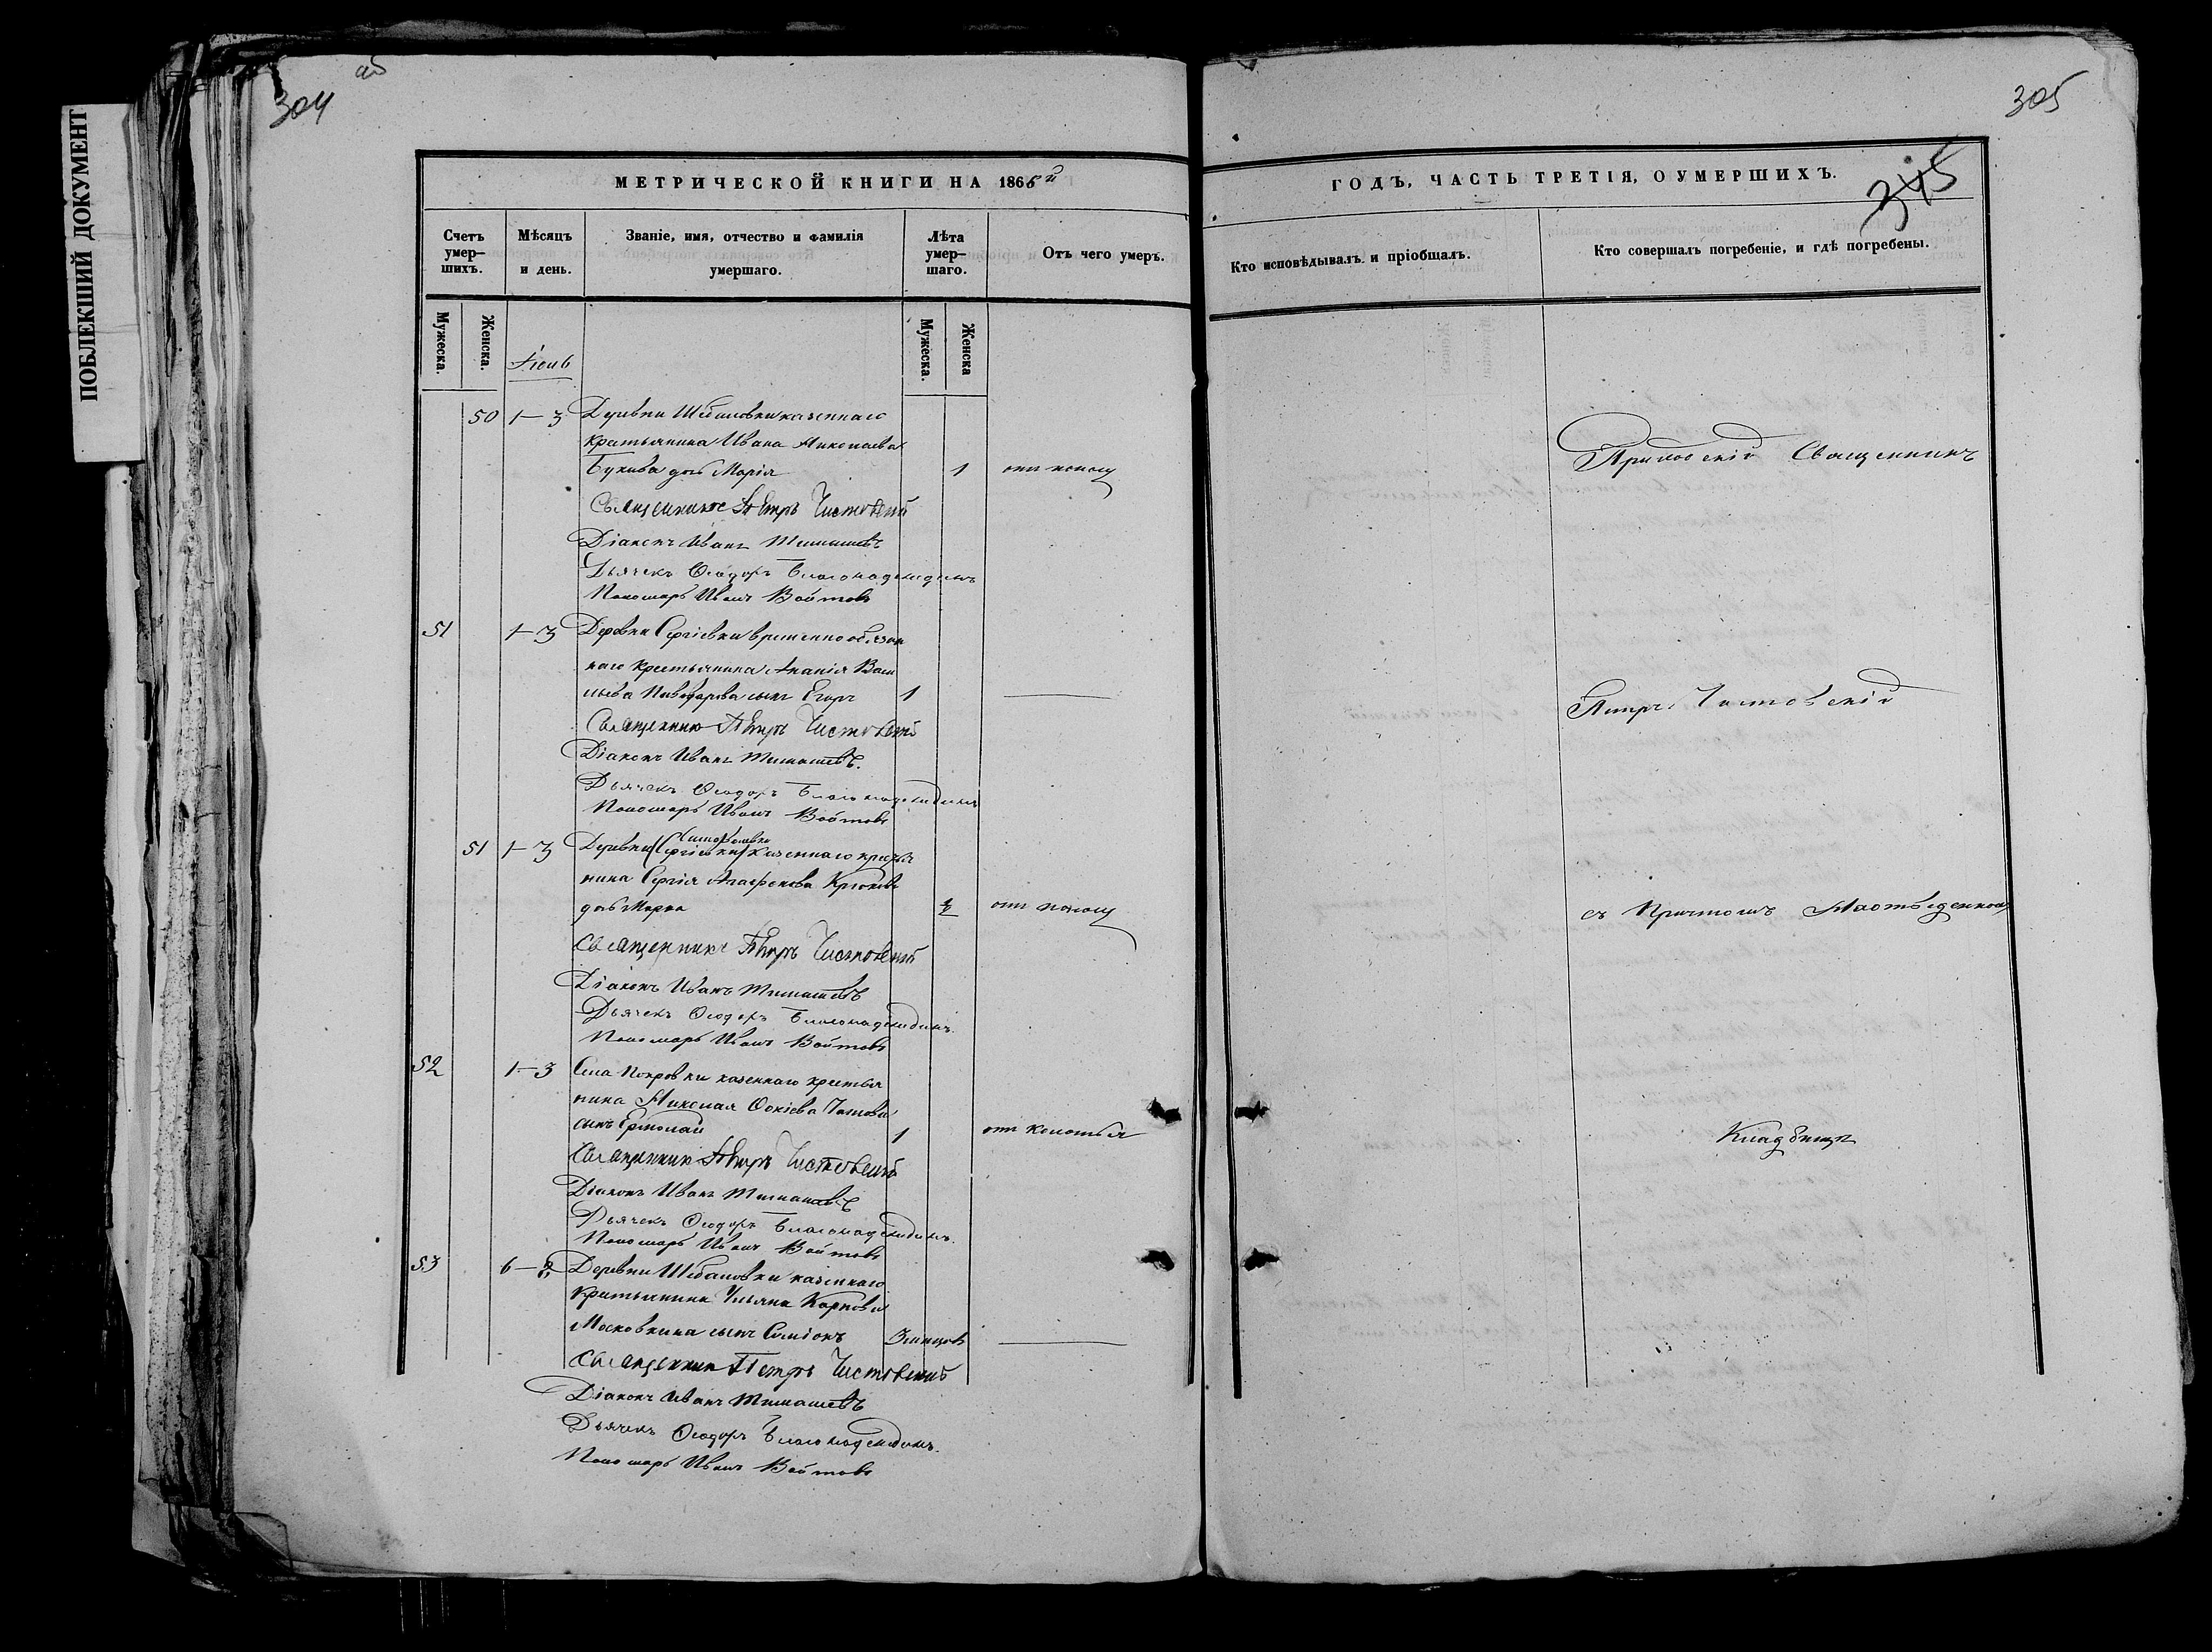 304
305
345
ПОБЛЕКШИЙ ДОКУМЕНТ
МЕТРИЧЕСКОЙ КНИГИ НА 1865й
Счетъ умер-шихъ.
Мѣсяцъ и день.
Званіе, имя, отчество и фамилія умершаго.
Лѣта умер-шаго.
Отъ чего умеръ.
Мужеска.
Женска.
Мужеска.
Женска
Іюнь
50 1-3 Деревни Шебановки казеннаго
крестьянина Ивана Николаева
дочь Марія 1 отъ поносу
Священникъ Петръ Чистовскій
Діаконъ Иванъ Тимашевъ
Дьячекъ Ѳеодоръ Благонадеждинъ
Пономарь Иванъ Войтовъ
51 1-3 Деревни Сергіевки временно обязан
наго крестьянина Ананія Васи
льева сынъ Егоръ 1
Священникъ Петръ Чистовскій
Діаконъ Иванъ Тимашевъ.
Дьячекъ Ѳеодоръ Благонадеждинъ
Пономарь Иванъ Войтовъ
51 1-3 Деревни (Сергіевки) казеннаго крестья
нина Сергія Агафонова Крюкова
дочь Марѳа отъ поносу
Священникъ Петръ Чистовскій
Діаконъ Иванъ Тимашевъ
Дьячекъ Ѳеодоръ Благонадеждинъ.
Пономарь Иванъ Войтовъ
52 1-3 Села Покровки казеннаго крестья
нина Николая Фокіева
сынъ Ермолай 1 отъ колотья
Священникъ Петръ Чистовскій
Діаконъ Иванъ Тимашевъ
Дьячекъ Ѳеодоръ Благонадеждинъ.
Пономарь Иванъ Войтовъ
53 6-8 Деревни Шебановки казеннаго
крестьянина Ульяна Карпова
Московкина сынъ Симіонъ
Священникъ Петръ Чистовскій
Діаконъ Иванъ Тимашевъ
Дьячекъ Ѳеодоръ Благонадеждинъ.
Пономарь Иванъ Войтовъ
ГОДЪ, ЧАСТЬ ТРЕТІЯ, О УМЕРШИХЪ.
Кто исповѣдывалъ и пріобщалъ.
Кто совершалъ погребеніе, и гдѣ погребены.
Приходскій Священникъ
Петръ Чистовскій
съ Причтомъ
Кладбищѣ